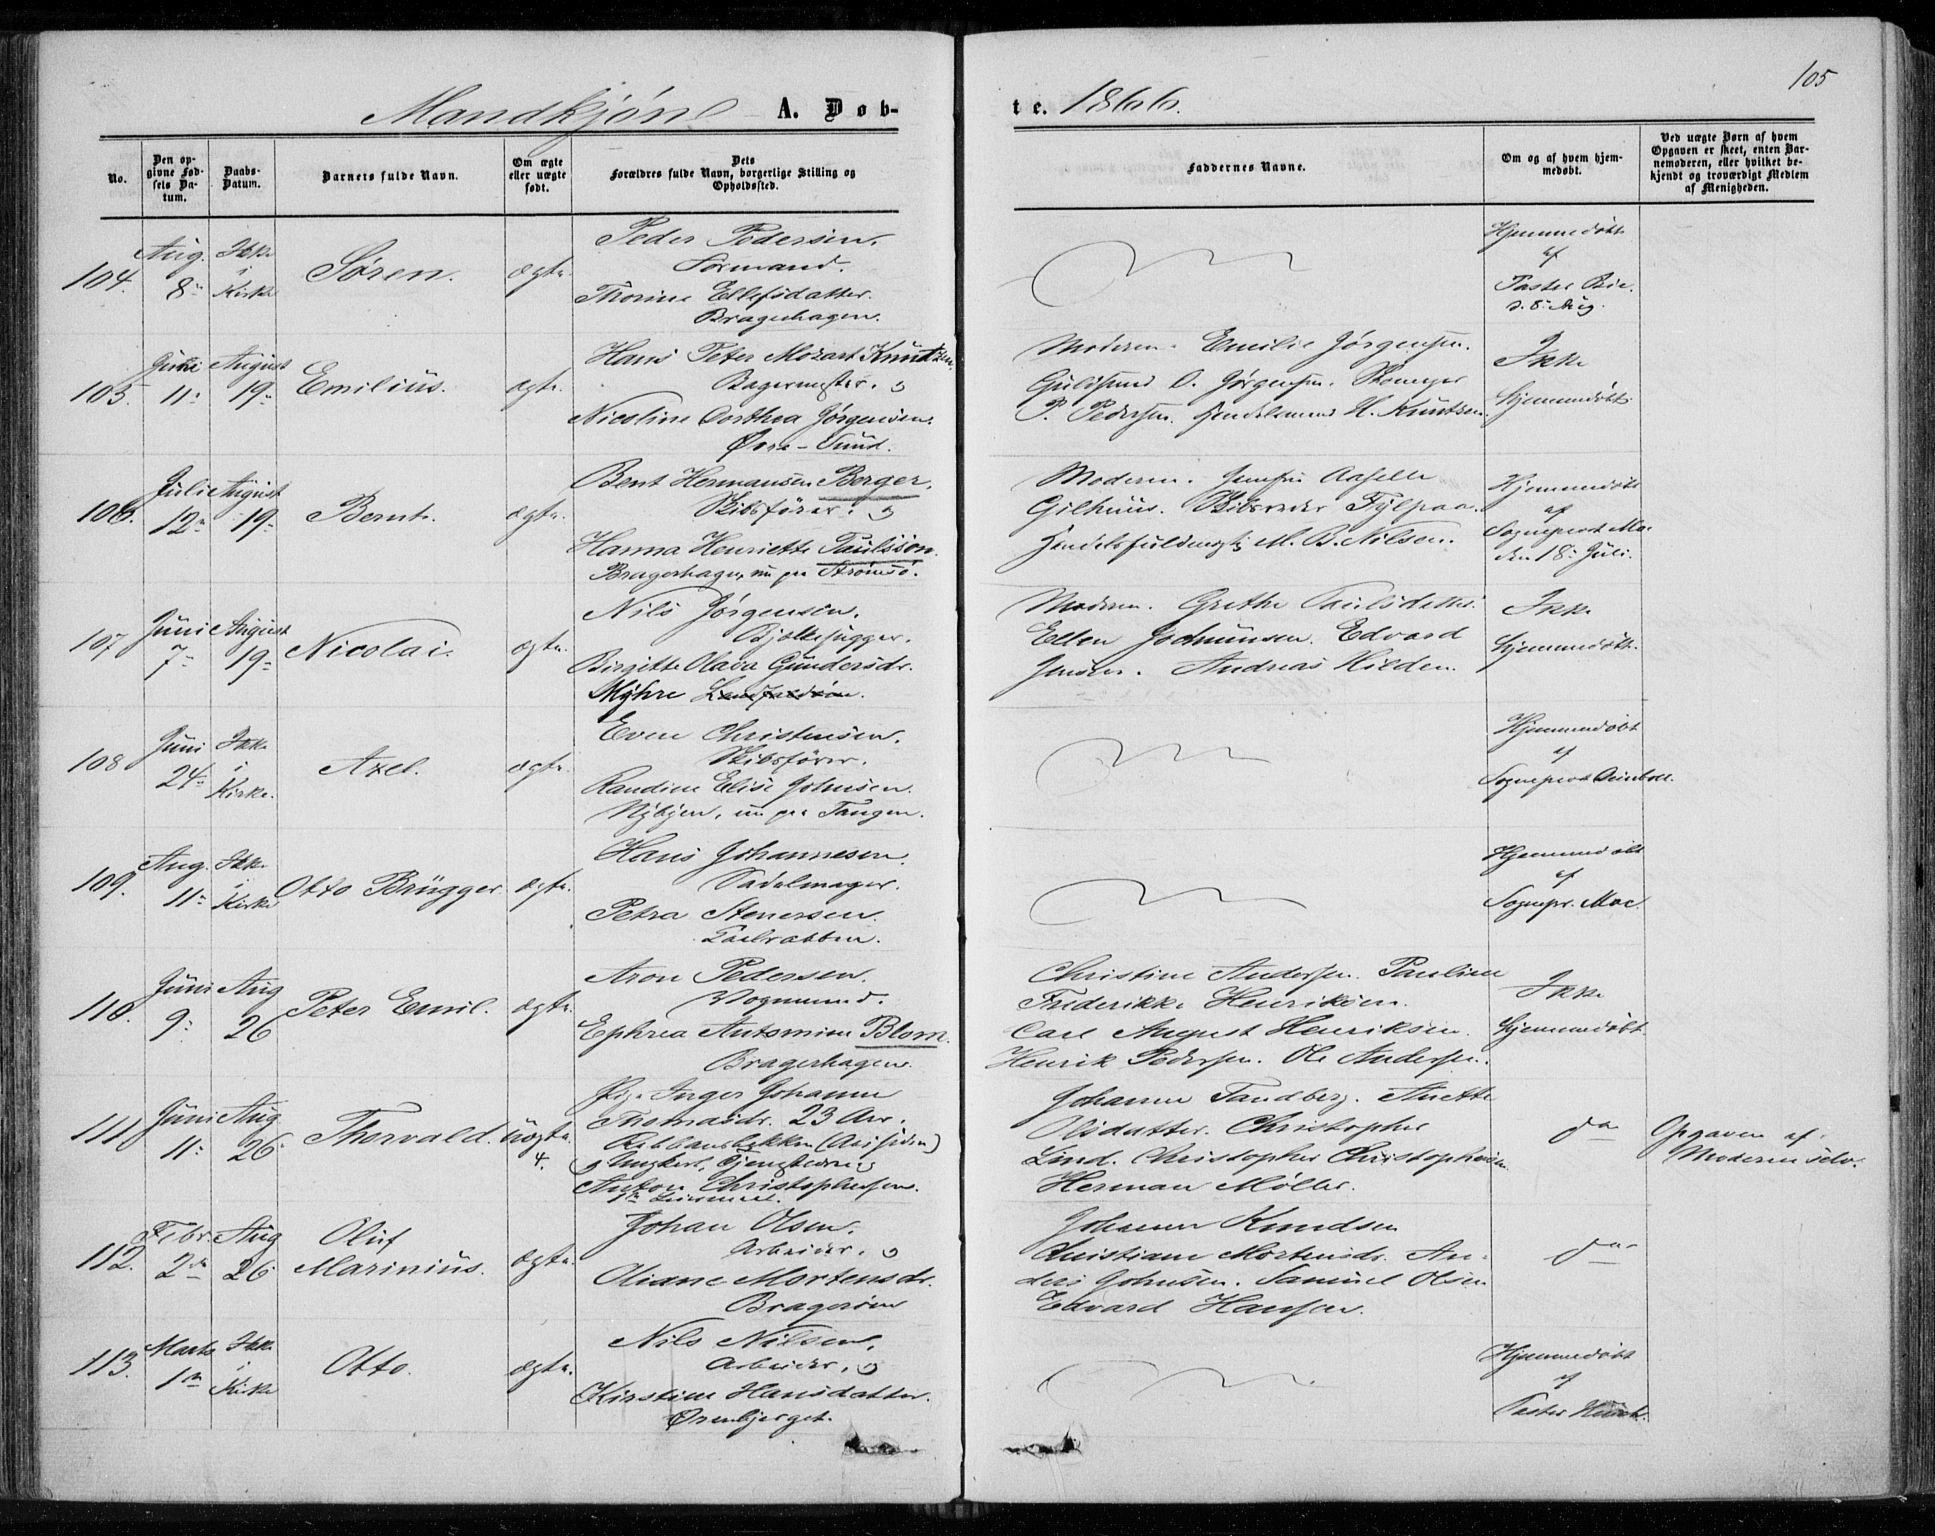 105
Mandkjøn A. Døb-
te. 1866.
No.
Den op-
givne Fød-
sels Da-
tum.
Daabs-
Datum.
Barnets fulde Navn.
Om ægte
eller uægte
født.
Dets
Forældres fulde Navn, borgerlige Stilling og
Opholdssted.
Faddernes Navne.
Om og af hvem hjem-
medøbt.
Ved uægte Børn af hvem
Opgaven er skeet, enten Bar-
nemoderen, eller hvilket be-
kjendt og troværdigt Medlem
af Menigheden.
104.
Aug.
8
Ikke
i
Kirke
Søren.
ægte.
Peder Pedersen.
Formand.
Thorine Ellefsdatter.
Bragerhagen.
Hjemmedøbt
af
Pastor Bie.
d. 8 Aug.
105.
Juni
11
August
19
Emilius.
ægte.
Hans Peter Mozart Knutzen.
Bagermester. o
Nicoline Dorthea Jørgensen.
Øvre-Sund.
Moderen. Emilie Jørgensen.
Guldsmed O. Jørgensen.
P. Pedersen. Handelsmand H. Knutsen.
Ikke
Hjemmedøbt.
106.
Juli
12
August
19
Bernt.
ægte.
Bent Hermansen Berger.
Skibsfører. o
Hanna Henriette Paulsson.
Bragerhagen, nu paa Strømsø.
Moderen. Jomfru
Gilhuus. Skibsreder
Handelsfuldmægtig M. B. Nilsen.
Hjemmedøbt
af
Sogneprest Moe
den 18 Juli.
107
Juni
7
August
19
Nicolai.
ægte.
Nils Jørgensen.
Bjelkehugger.
Birgitte Olava Gundersdr.
Myhre
Moderen. Grethe Paulsdatter.
Ellen Jochumsen. Edvard
Jensen. Andreas Hilden.
Ikke
Hjemmedøbt.
108
Juni
24
Ikke
i
Kirke.
Axel.
ægte.
Even Christensen.
Skibsfører.
Randine Elise Johnsen.
Nybyen, nu paa Tangen.
Hjemmedøbt
af
Sogneprest
109.
Aug.
11
Ikke
i
Kirke
Otto Brügger.
ægte.
Hans Johannesen.
Sadelmager.
Petra Stenersen.
Hjemmedøbt
af
Sognepr. Moe.
110.
Juni
9
Aug
26
Peter Emil.
ægte.
Aron Pedersen.
Vognmand.
Ephrea Antomine Blom.
Bragerhagen.
Christine Andersen. Pauline
Frederikke Henriksen.
Carl August Henriksen.
Henrik Pedersen. Ole Andersen.
Ikke
Hjemmedøbt
111
Juni
11
Aug
26
Thorvald.
Uægte.
4.
Pige Inger Johanne
Thomasdr. 23 Aar.
o Ungkarl, Tjenestedreng
Anton Christophersen.
Johanne Sandberg. Anette
Olsdatter. Christopher
Lind. Christopher Christophersen
Herman Møller.
do
Opgaven af
Moderen selv.
112.
Febr.
2den
Aug
26
Oluf
Marinius.
ægte.
Johan Olsen.
Arbeider. o
Oliane Mortensdr.
Bragerøen
Johanne Knudsen
Christiane Mortensdr. An-
ders Johnsen. Samuel Olsen
Edvard Hansen.
do
113.
Marts
1ste
Ikke
i
Kirke
Otto.
ægte.
Nils Nilsen.
Arbeider. o
Kirstine Hansdatter.
Ørenbjerget.
Hjemmedøbt
af
Pastor